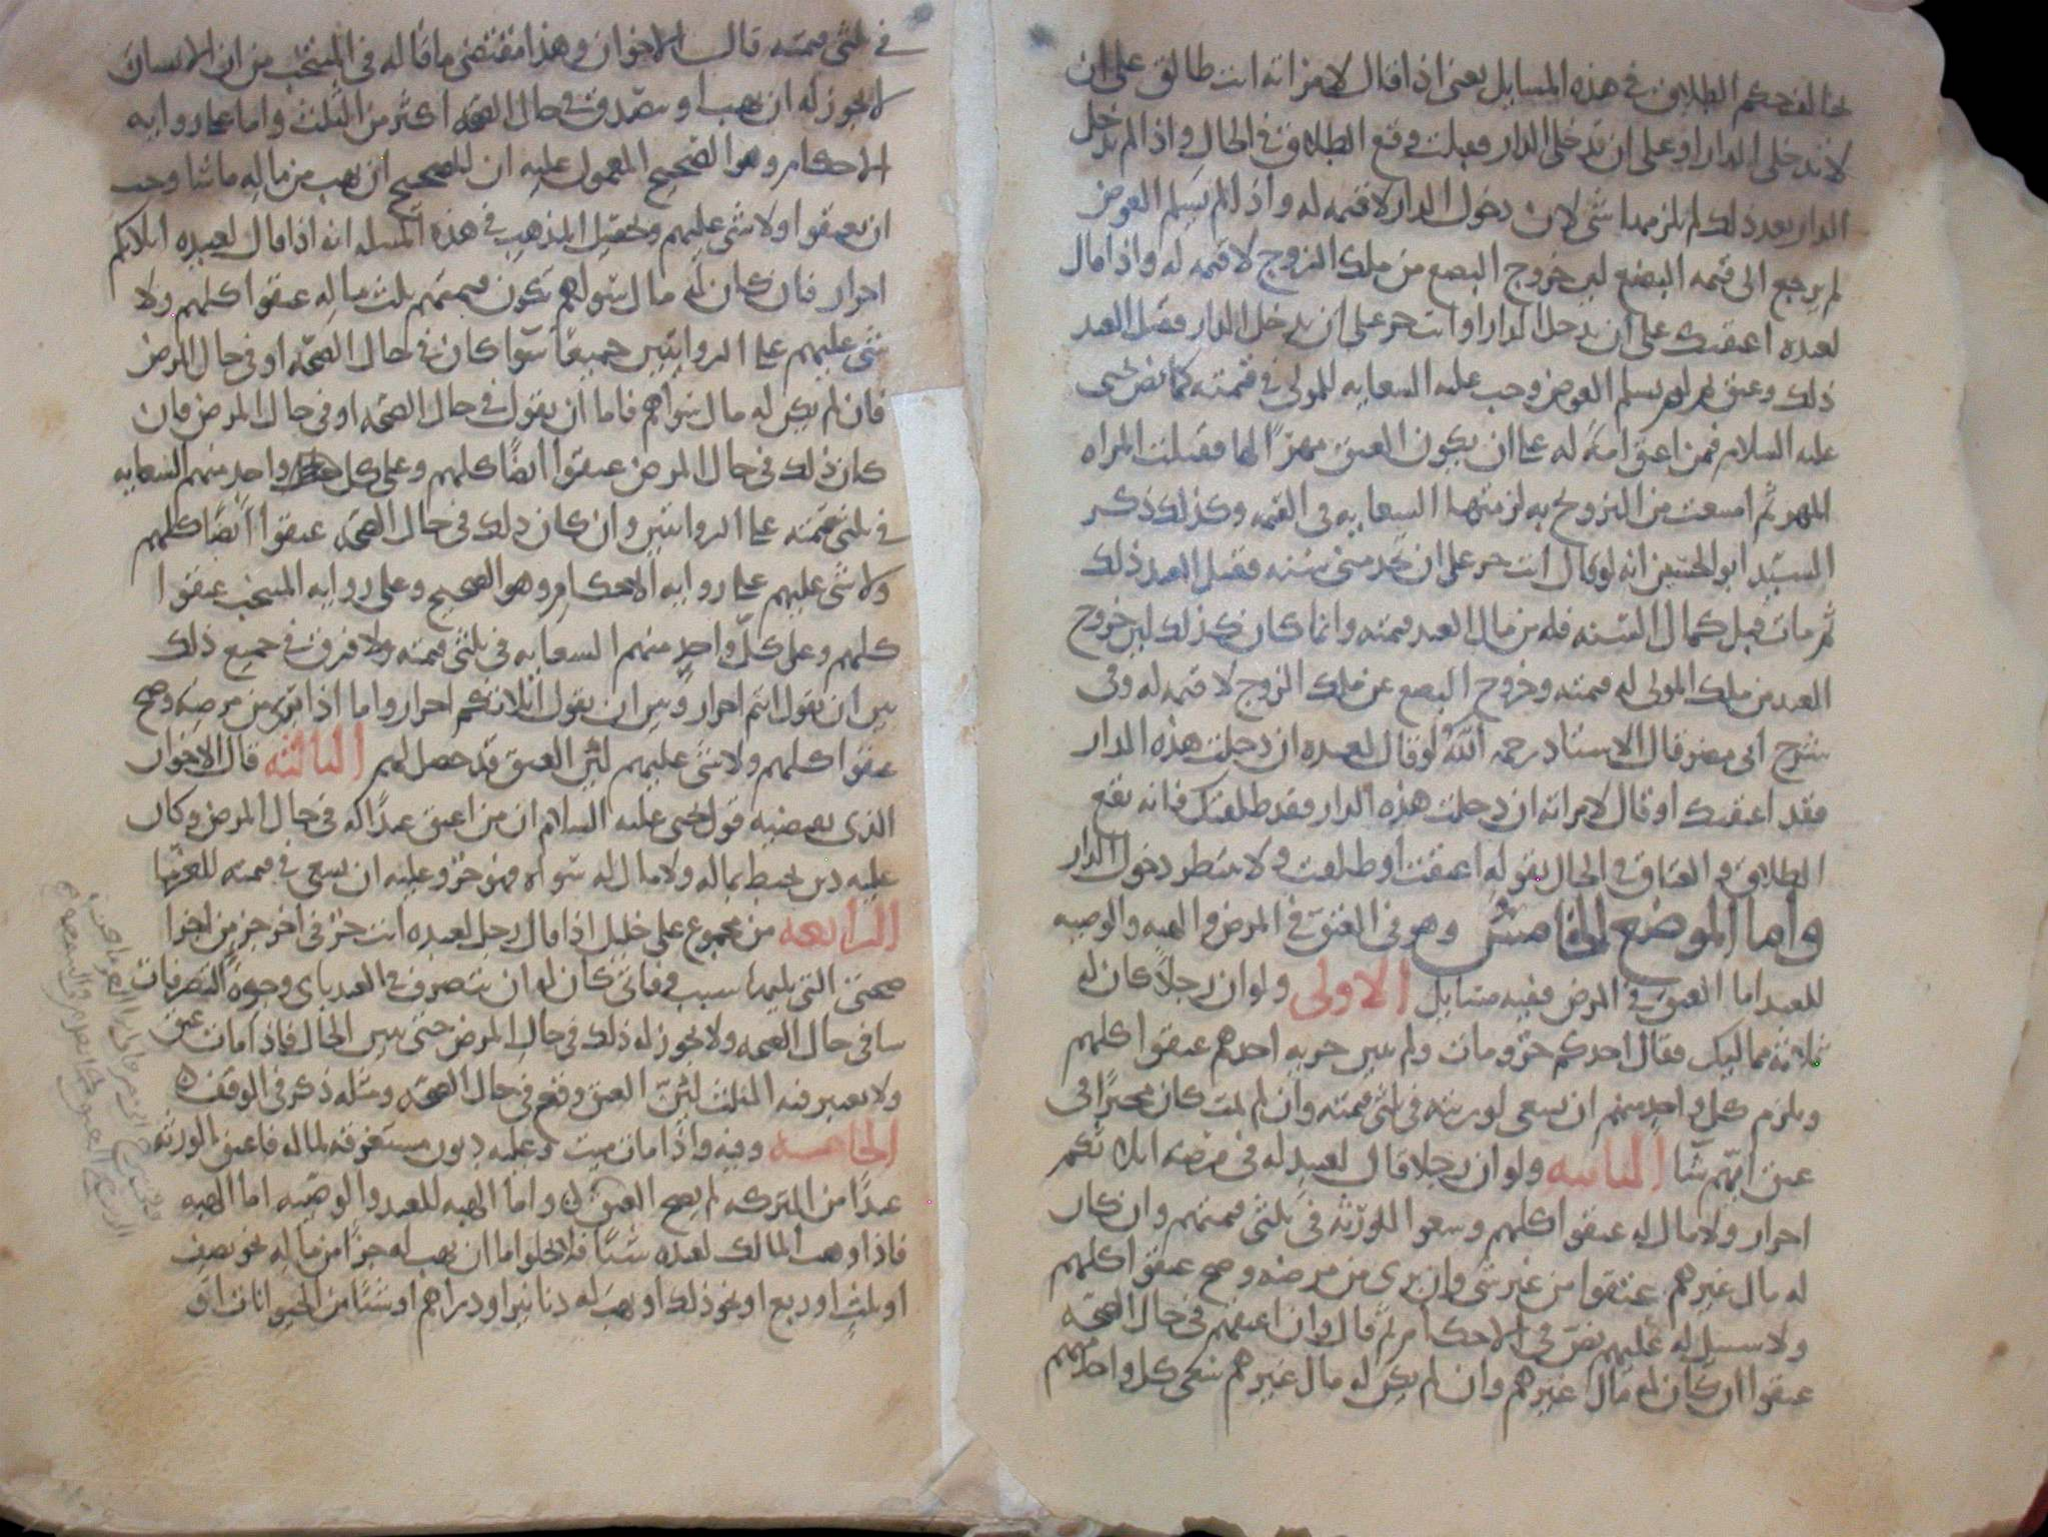 يخالف حكم الطلاق في هذه المسايل يعني اذا قال لامراته انت طالق على ان
لا تدخلي الدار او على ان تدخلي الدار فقبلت وقع الطلاق في الحال واذا لم تدخل
الدار بعد ذلك لم يلزمها شي لان دخول الدار لا قيمه له واذا لم يسلم العوض
لم يرجع الى قيمه البضع لان خروج البضع من ملك الزوج لا قيمه له واذا قال
لعبده اعتقتك على ان تدخل الدار او انت حر على ان تدخل الدار فقبل العبد
ذلك وعتق ثم لم يسلم العوض وجب عليه السعايه للمولى في قيمته كما نص يحيى
عليه السلام فمن اعتق امة له على ان يكون العتق مهرًا لها فقبلت المراه
المهر ثم امتنعت من التزوج به لزمتها السعايه في القيمه وكذلك ذكر
السيد ابو الحسين انه لو قال انت حر على ان تخدمني سنه فقبل العبد ذلك
ثم مات قبل كمال السنه فله من مال العبد قيمته وانما كان كذلك لان خروج
العبد من ملك المولى له قيمته وخروج البضع عن ملك الزوج لا قيمه له وفي
شرح ابي مضر قال الاستاد رحمه الله لو قال لعبده ان دخلت هذه الدار
فقد اعتقتك او قال لامراته ان دخلت هذه الدار فقد طلقتك فانه يقع
الطلاق والعتاق في الحال بقوله اعتقت او طلقت ولا ينتظر دخول الدار
واما الموضع الخامس وهو في العتق في المرض والهبه والوصيه
للعبد اما العتق في المرض ففيه مسايل الاولى ولو ان رجلاً كان له
ثلاثه مماليك فقال احدكم حر ومات ولم يبين حريه احدهم عتقوا كلهم
ويلزم كل واحد منهم ان يسعى لورثته في ثلثي قيمته وان لم يمت كان مخيرًا في
عتق ايهم شا الثانيه ولو ان رجلا قال لعبيد له في مرضه ثلاثتكم
احرار ولا مال له عتقوا كلهم وسعوا للورثه في ثلثي قيمتهم وان كان
له مال غيرهم عتقوا من غير شي وان برى من مرضه وصح عتقوا كلهم
ولا سبيل له عليهم نص في الاحكام ثم قال وان اعتقهم في حال الصحه
عتقوا ان كان له مال غيرهم وان لم يكن له مال غيرهم سعى كل واحد منهم
في ثلثي قيمته قال الاخوان وهذا مقتضى ما قاله في المنتخب من ان الانسان
لا يجوز له ان يهب او يتصدق في حال الصحه اكثر من الثلث واما على روايه
الاحكام وهو الصحيح المعمول عليه ان للصحيح ان يهب من ماله ما شا وجب
ان يعتقوا ولا شي عليهم وتحصيل المذهب في هذه المسله انه اذا قال لعبيده ثلاثتكم
احرار فان كان له مال سواهم تكون قيمتهم ثلث ماله عتقوا كلهم ولا
شي عليهم على الروايتين جميعًا سوا كان في حال الصحه او في حال المرض
فان لم يكن له مال سواهم فاما ان يقول في حال الصحه او في حال المرض فان
كان ذلك في حال المرض عتقوا ايضًا كلهم وعلى كل واحد منهم السعايه
في ثلثي قيمته على الروايتين وان كان ذلك في حال الصحه عتقوا ايضًا كلهم
ولا شي عليهم على روايه الاحكام وهو الصحيح وعلى روايه المنتخب عتقوا
كلهم وعلى كل واحد منهم السعايه في ثلثي قيمته ولا فرق في جميع ذلك
بين ان يقول انتم احرار وبين ان يقول ثلاثتكم احرار واما اذا برى من مرضه وصح
عتقوا كلهم ولا شي عليهم لان العتق قد حصل لهم الثالثه قال الاخوان
الذي يقتضيه قول يحيى عليه السلام ان من اعتق عبدًا له في حال المرض وكان
عليه دين يحيط بماله ولا مال له سواه فهو حر وعليه ان يسعى في قيمته للغرما
الرابعه من مجموع علي خليل اذا قال رجل لعبده انت حر في اخر جز من اجزا
صحتي التي يليها سبب وفاتي كان له ان يتصرف في العبد باي وجوه التصرفات
شا في حال الصحه ولا يجوز له ذلك في حال المرض حتى يبين الحال فاذا مات عتق
ولا يعتبر فيه الثلث لان العتق وقع في حال الصحه ومثله ذكر في الوقف
الخامسه وفيه واذا مات ميت وعليه ديون مستغرقه لماله فاعتق الورثه
عبدًا من التركه لم يصح العتق واما الهبه للعبد والوصيه اما الهبه
فاذا وهب المالك لعبده شيًا فلا يخلوا اما ان يهب له جزًا من ماله نحو نصف
او ثلث او ربع او نحو ذلك او يهب له دنانير او دراهم او شيًا من الحيوانات او